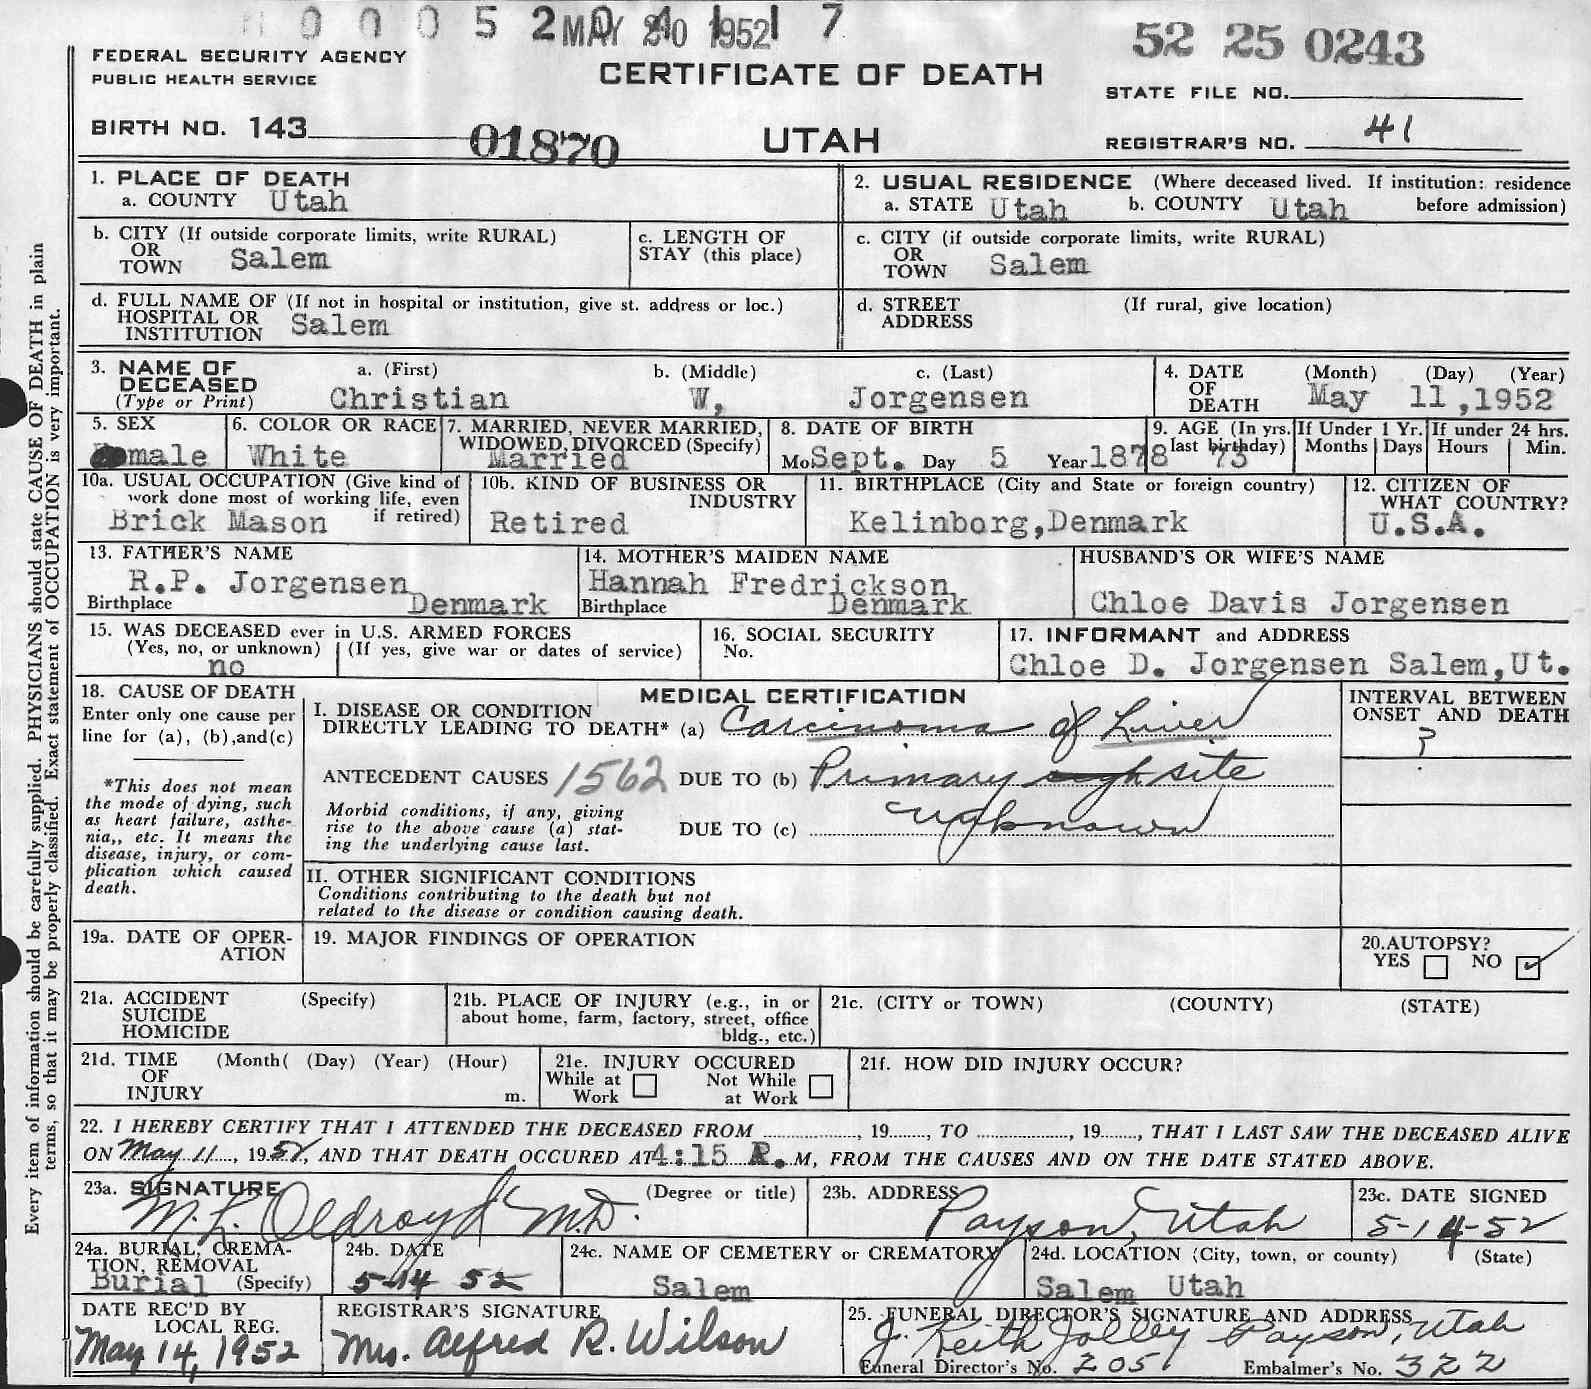 0 0 0 5 2 MAY 20 1952 1 7
52 25 0243
FEDERAL SECURITY AGENCY
PUBLIC HEALTH SERVICE
CERTIFICATE OF DEATH
STATE FILE NO.
BIRTH NO. 143
01870
UTAH
REGISTRAR'S NO. 41
Every item of information should be carefully supplied. PHYSICIANS should state CAUSE OF DEATH in plain
terms, so that it may be properly classified. Exact statement of OCCUPATION is very important.
1. PLACE OF DEATH
a. COUNTY Utah
2. USUAL RESIDENCE (Where deceased lived. If institution: residence
a. STATE Utah b. COUNTY Utah before admission)
b. CITY (If outside corporate limits, write RURAL)
OR
TOWN Salem
c. LENGTH OF
STAY (this place)
c. CITY (if outside corporate limits, write RURAL)
OR
TOWN Salem
d. FULL NAME OF (If not in hospital or institution, give st. address or loc.)
HOSPITAL OR
INSTITUTION Salem
d. STREET (If rural, give location)
ADDRESS
3. NAME OF
DECEASED
(Type or Print)
a. (First) b. (Middle) c. (Last)
Christian W, Jorgensen
4. DATE (Month) (Day) (Year)
OF
DEATH May 11,1952
5. SEX
male
6. COLOR OR RACE
White
7. MARRIED, NEVER MARRIED,
WIDOWED, DIVORCED (Specify)
Married
8. DATE OF BIRTH
Mo Sept. Day 5 Year 1878
9. AGE (In yrs.
last birthday) 73
If Under 1 Yr.
Months Days
If under 24 hrs.
Hours Min.
10a. USUAL OCCUPATION (Give kind of
work done most of working life, even
if retired)
Brick Mason
10b. KIND OF BUSINESS OR
INDUSTRY
Retired
11. BIRTHPLACE (City and State or foreign country)
Kelinborg,Denmark
12. CITIZEN OF
WHAT COUNTRY?
U.S.A.
13. FATHER'S NAME
R.P. Jorgensen
Birthplace Denmark
14. MOTHER'S MAIDEN NAME
Hannah Fredrickson
Birthplace Denmark
HUSBAND'S OR WIFE'S NAME
Chloe Davis Jorgensen
15. WAS DECEASED ever in U.S. ARMED FORCES
(Yes, no, or unknown) (If yes, give war or dates of service)
no
16. SOCIAL SECURITY
No.
17. INFORMANT and ADDRESS
Chloe D. Jorgensen Salem,Ut.
18. CAUSE OF DEATH
Enter only one cause per
line for (a), (b),and(c)
*This does not mean
the mode of dying, such
as heart failure, asthe-
nia,, etc. It means the
disease, injury, or com-
plication which caused
death.
MEDICAL CERTIFICATION
I. DISEASE OR CONDITION
DIRECTLY LEADING TO DEATH* (a) Carcinoma of Liver
ANTECEDENT CAUSES 1562 DUE TO (b) Primary site
Morbid conditions, if any, giving
rise to the above cause (a) stat-
ing the underlying cause last.
DUE TO (c) unknown
INTERVAL BETWEEN
ONSET AND DEATH
?
II. OTHER SIGNIFICANT CONDITIONS
Conditions contributing to the death but not
related to the disease or condition causing death.
19a. DATE OF OPER-
ATION
19. MAJOR FINDINGS OF OPERATION
20.AUTOPSY?
YES NO ✓
21a. ACCIDENT (Specify)
SUICIDE
HOMICIDE
21b. PLACE OF INJURY (e.g., in or
about home, farm, factory, street, office
bldg., etc.)
21c. (CITY or TOWN) (COUNTY) (STATE)
21d. TIME (Month( (Day) (Year) (Hour)
OF
INJURY m.
21e. INJURY OCCURED
While at Not While
Work at Work
21f. HOW DID INJURY OCCUR?
22. I HEREBY CERTIFY THAT I ATTENDED THE DECEASED FROM ............, 19......., TO ............, 19......., THAT I LAST SAW THE DECEASED ALIVE
ON May 11, 1952, AND THAT DEATH OCCURED AT 4:15 P.M, FROM THE CAUSES AND ON THE DATE STATED ABOVE.
23a. SIGNATURE (Degree or title)
M. L. Oldroyd M.D.
23b. ADDRESS
Payson, Utah
23c. DATE SIGNED
5-14-52
24a. BURIAL, CREMA-
TION, REMOVAL
Burial (Specify)
24b. DATE
5-14 52
24c. NAME OF CEMETERY or CREMATORY
Salem
24d. LOCATION (City, town, or county) (State)
Salem Utah
DATE REC'D BY
LOCAL REG.
May 14, 1952
REGISTRAR'S SIGNATURE
Mrs. Alfred R. Wilson
25. FUNERAL DIRECTOR'S SIGNATURE AND ADDRESS
J. Keith Jolley Payson, Utah
Funeral Director's No. 205 Embalmer's No. 322